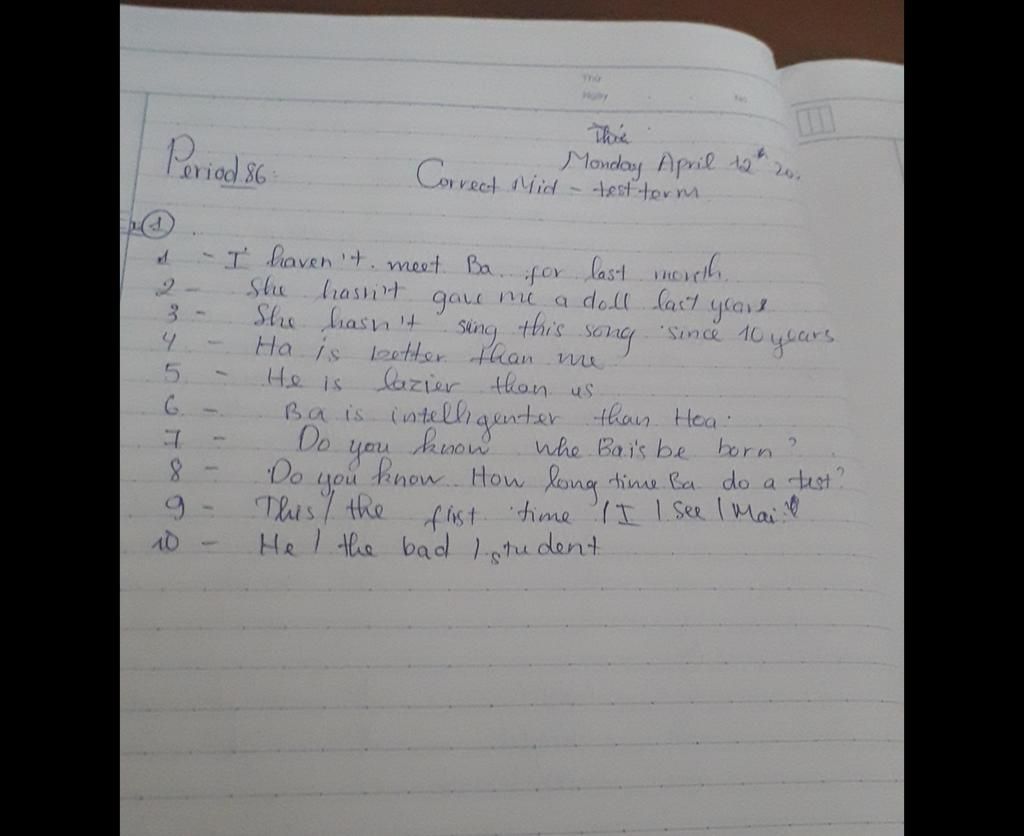 Thứ
Ngày
No.
Thứ
Monday April 12th 20.
Period 86:
Correct Mid - test term
1
1 - I haven't meet Ba for last month.
2 - She hasn't gave me a doll last years
3 - She hasn't sing this song since 10 years
4 - Ha is better than me
5 - He is lazier than us
6 - Ba is intelligenter than Hoa.
7 - Do you know whe Ba is be born?
8 - Do you know How long time Ba do a test?
9 - This / the first time / I / See / Mai.
10 - He / the bad / student